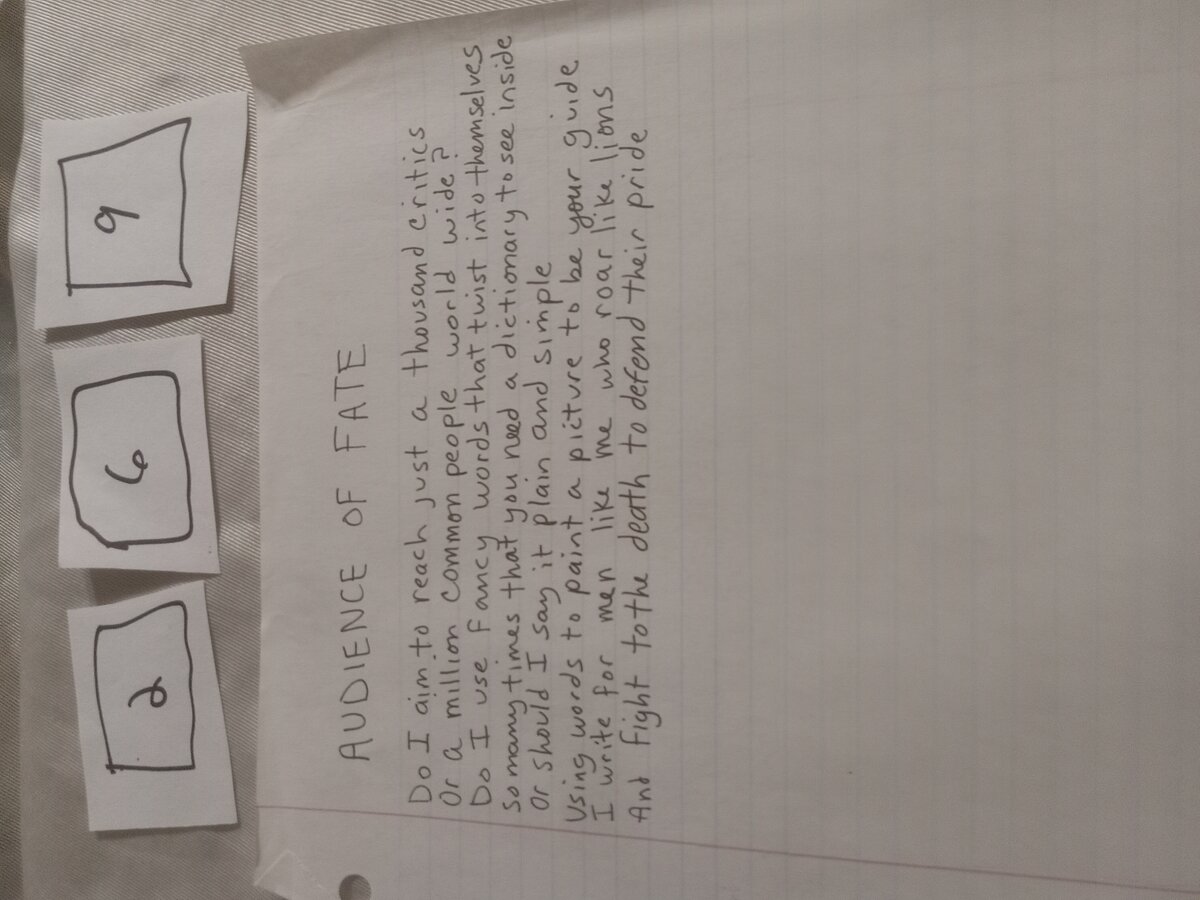 2 6 9
AUDIENCE OF FATE
Do I aim to reach just a thousand critics
Or a million common people world wide?
Do I use fancy words that twist into themselves
So many times that you need a dictionary to see inside
Or should I say it plain and simple
Using words to paint a picture to be your guide
I write for men like me who roar like lions
And fight to the death to defend their pride